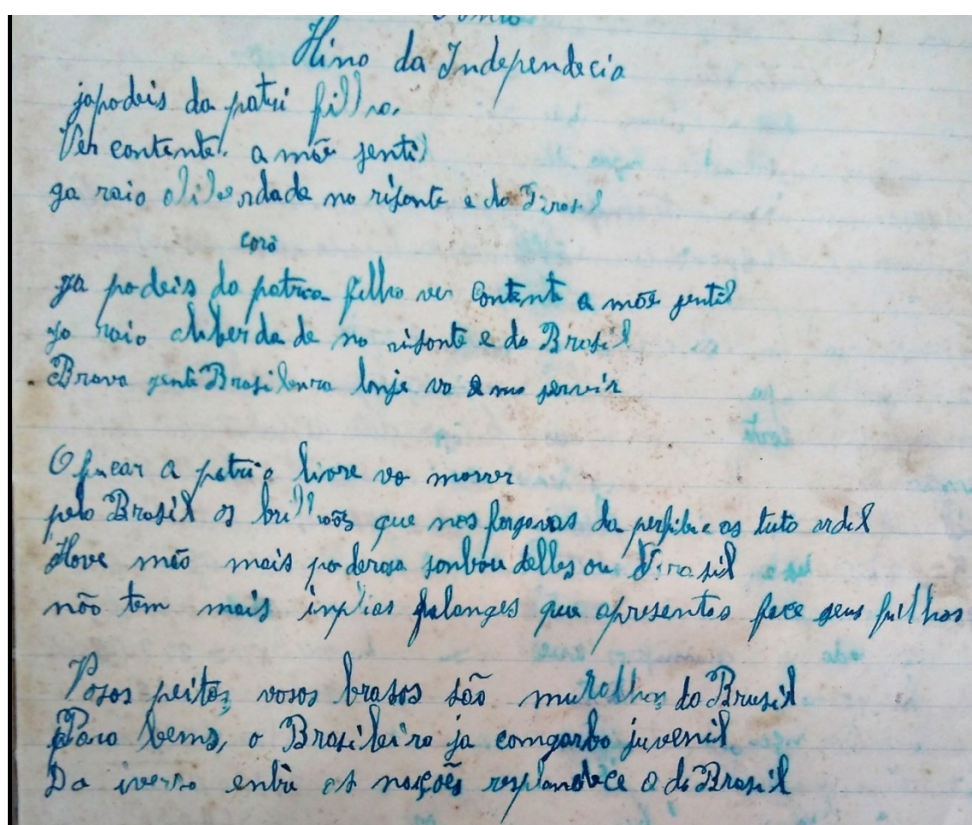 Hino da Independecia
japodeis da patri filho.
Ver contente. a mãe jentil
ga raio oliberdada no risonte e do Brasil
corô
ga podeis da patria filho ver contente a mãe jentil
ga raio aliberda de no risonte e do Brasil
Brava gente Brasileura lonje va e mo servir
O ficar a patria livre vo morrer
pelo Brasil os brilhoês que nos forgavas da perfibi e as tuto ardil
Hove mão mais poderosa sonbou delles ou Brasil
não tem mais inpias falanges que apresentas face seus filhos
Vosos peitos, vosos brasos são muralhas do Brasil
Para bems, o Brasileiro ja comgarbo juvenil
Do iverso entre as nasções resplandece a do Brasil